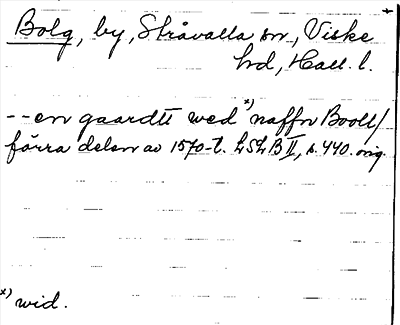 Bolg, by, Stråvalla sn, Viske
hd, Hall. l.
-- en gaardtt wed x) naffn Boell/
förra delen av 1570-t. LSLB II, s. 440. orig.
x) wid.